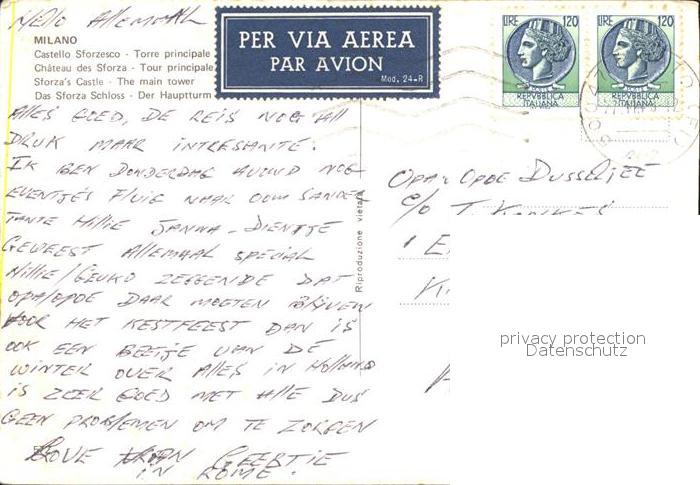 Hello Allemaal
MILANO
Castello Sforzesco - Torre principale
Château des Sforza - Tour principale
Sforza's Castle - The main tower
Das Sforza Schloss - Der Hauptturm
PER VIA AEREA
PAR AVION
Mod. 24-R
LIRE 120
REPVBBLICA
ITALIANA
LIRE 120
REPVBBLICA
ITALIANA
ALLES GOED, DE REIS NOG AL
DRUK MAAR INTRESANTE.
IK BEN DONDERDAG AVOND NOG
EVENTJES NAAR OOM SANDER
TANTE HILLIE JANNA - DIENTJE
GEWEEST ALLEMAAL SPECIAL
HILLIE/GEUKO ZEGGENDE DAT
OPA/OPOE DAAR MOETEN BLIJVEN
VOOR HET KESTFEEST DAN IS
OOK EEN BEETJE VAN DE
WINTER OVER ALLES IN HOLLAND
IS ZEER GOED MET ALLE DUS
GEEN PROBLEMEN OM TE ZORGEN
LOVE GEERTIE
IN ROME.
Riproduzione vietata
OPA - OPOE
c/o T.
privacy protection
Datenschutz